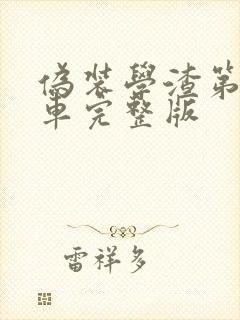 偽裝學渣第
車完整版
雷祥多